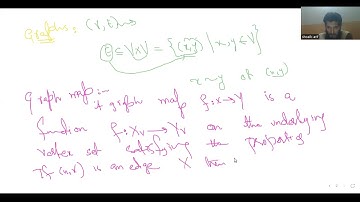 Graphs: (V, E)
E ⊆ V×V = {(x,y) | x,y ∈ V}
x~y if (x,y)
Graph map:- A graph map f: X → Y is a
function f: Xv → Yv on the underlying
vertex set satisfying the properties
If (x,y) is an edge X then